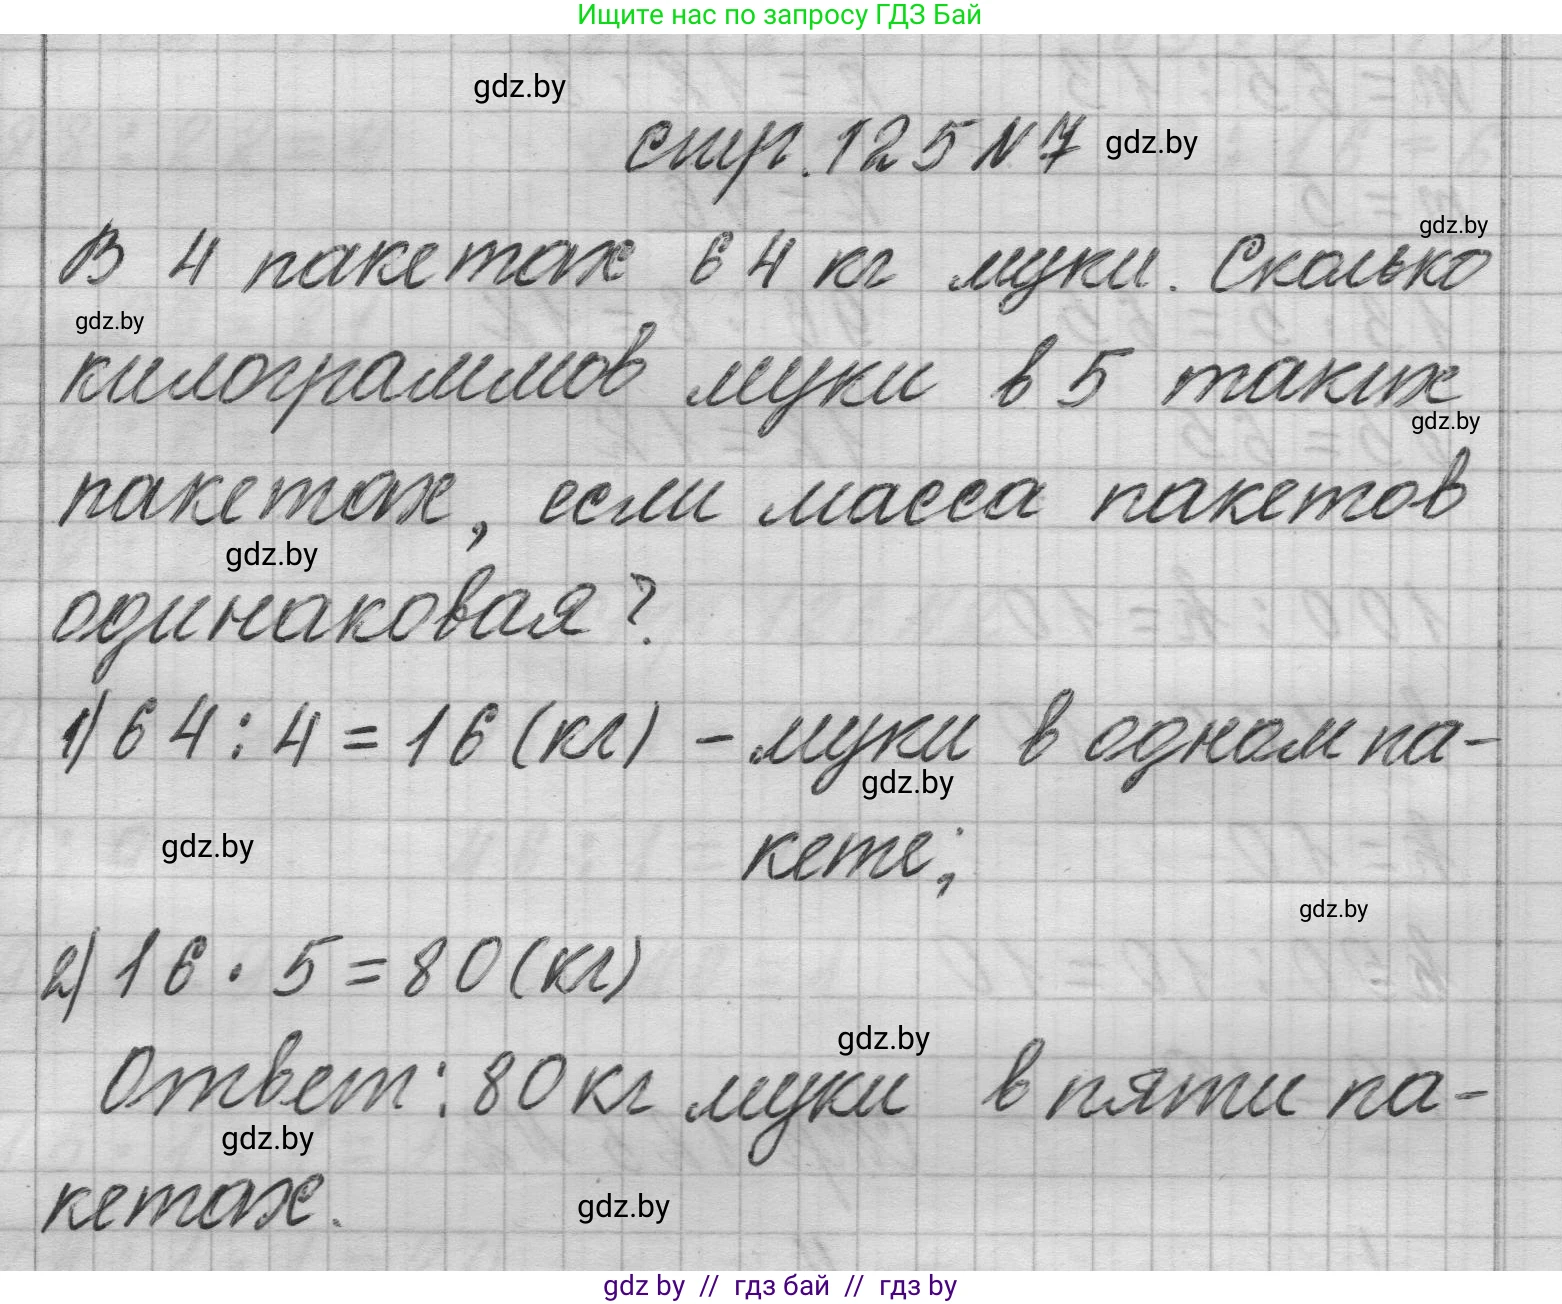 Ищите нас по запросу ГДЗ Бай
gdz.by
стр. 125 N 7 gdz.by
gdz.by
В 4 пакетах 64 кг муки. Сколько
gdz.by
килограммов муки в 5 таких
gdz.by
пакетах, если масса пакетов
gdz.by
одинаковая?
1) 64 : 4 = 16 (кг) - муки в одном па-
gdz.by
gdz.by
кете;
gdz.by
2) 16 · 5 = 80 (кг)
gdz.by
Ответ: 80 кг муки в пяти па-
gdz.by
кетах.
gdz.by
gdz by // гдз бай // гдз by